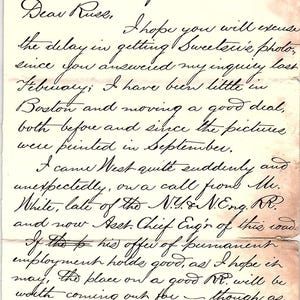 Dear Russ,
I hope you will excuse
the delay in getting Sweetser's photo,
since you answered my inquiry last
February; I have been little in
Boston and moving a good deal,
both before and since the pictures
were printed in September.
I came West quite suddenly and
unexpectedly, on a call from Mr.
White, late of the N.Y. & N. Eng. RR.
and now Asst. Chief Engr of this road.
If his offer of permanent
employment holds good, as I hope it
may, the place on a good RR. will be
worth coming out for — though as